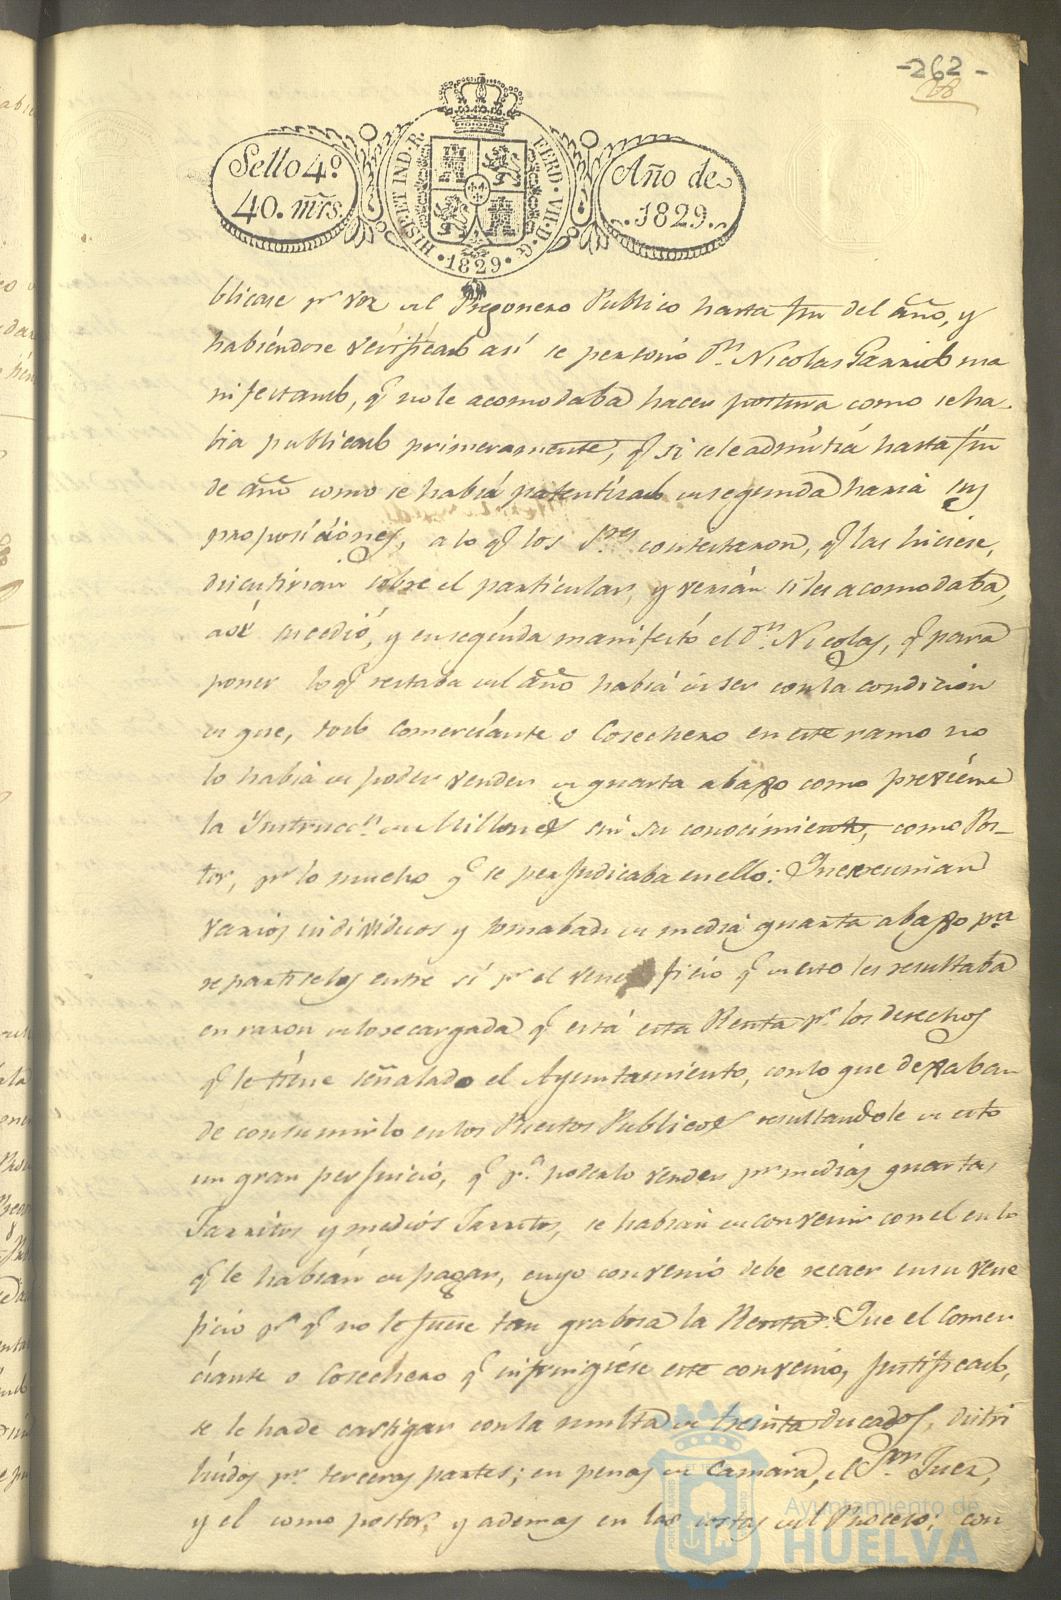 -262-
Sello 4º
40. mrs.
HISP. ET IND. R.
FERD. VII. D. G.
·1829·
Año de
1829.
blicase pr. voz del Pregonero Publico hasta fin del año, y
habiéndose verificado asi se personó Dn. Nicolas Garrido ma
nifestando, q. no le acomodaba hacer postura como se ha-
bia publicado primeramente, q. si se le admitia hasta fin
de año como se habia patentizado en segunda haria sus
proposiciones, a lo q. los Sres. contestaron, q. las hiciese,
discutirian sobre el particular, y verian si les acomodaba,
asi sucedió, y en seguida manifestó el Dn. Nicolas, q. para
poner lo q. restaba del año habia de ser con la condicion
de que, todo comerciante o Cosechero en este ramo no
lo habia de poder vender de quarta abaxo como previene
la Instruccn. de Millones sin su conocimiento, como Pos-
tor, pr. lo mucho q. se perjudicaba en ello: Que se reunian
varios individuos y tomaban de media quarta abaxo pa.
repartirselos entre sí pr. el veneficio q. de esto les resultaba
en razon de lo recargada q. está esta Renta pr. los derechos
q. le tiene señalado el Ayuntamiento, con lo que dexaban
de consumirlo en los Puestos Publicos resultandole de esto
un gran perjuicio, q. pa. poderlo vender pr. medias quartas
Jarritos y medios Jarritos, se habian de convenir con el en lo
q. le habian de pagar, cuyo convenio debe recaer en su vene
ficio pr. q. no le fuese tan grabosa la Renta. Que el comer
ciante o Cosechero q. infringiese este convenio, justificado,
se le ha de castigar con la multa de treinta ducados, distri
buidos pr. terceras partes; en penas de Camara, el Sor. Juez,
y el como postor, y ademas en las costas del Proceso; con
Ayuntamiento de
HUELVA